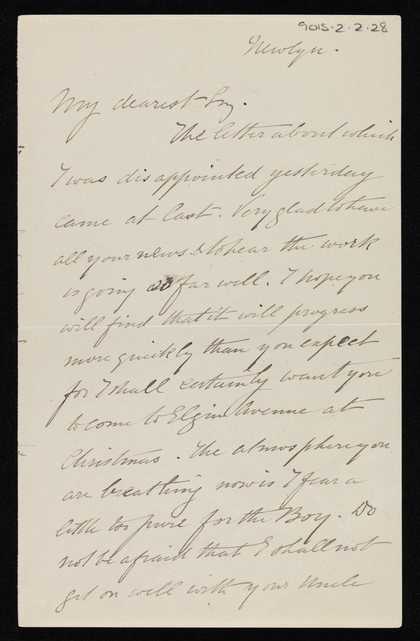 9015-2-2-28
Newlyn.
My dearest
The letter about which
I was disappointed yesterday
came at last. Very glad to have
all your news & to hear the work
is going so far well. I hope you
will find that it will progress
more quickly than you expect
for I shall certainly want you
to come to Elgin Avenue at
Christmas. The atmosphere you
are breathing now is I fear a
little too pure for the Boy. Do
not be afraid that I shall not
get on well with your Uncle